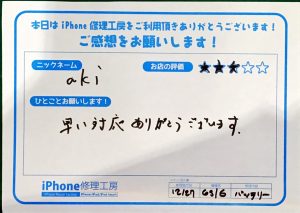 本日は iPhone 修理工房をご利用頂きありがとうございます!
ご感想をお願いします!
ニックネーム
お店の評価
aki
★★★☆☆
ひとことお願いします!
早い対応ありがとうございます.
iPhone修理工房
12/27 バッテリー